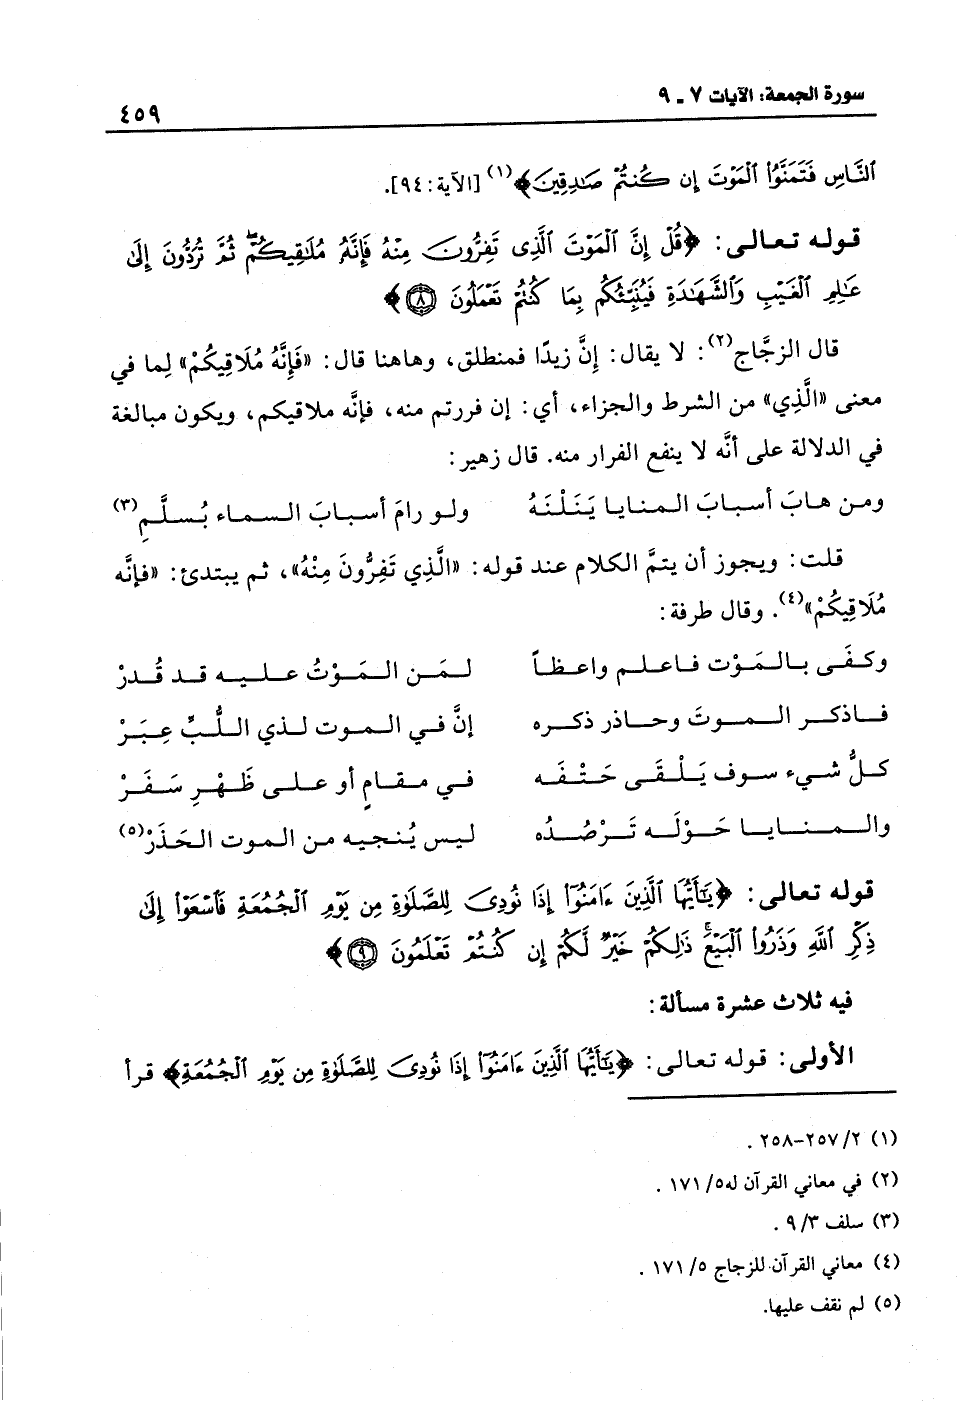 سورة الجمعة: الآيات ٧ ـ ٩
٤٥٩
ٱلنَّاسِ فَتَمَنَّوُا۟ ٱلْمَوْتَ إِن كُنتُمْ صَٰدِقِينَ﴾(١) [الآية: ٩٤].
قوله تعالى: ﴿قُلْ إِنَّ ٱلْمَوْتَ ٱلَّذِى تَفِرُّونَ مِنْهُ فَإِنَّهُۥ مُلَٰقِيكُمْ ۖ ثُمَّ تُرَدُّونَ إِلَىٰ
عَٰلِمِ ٱلْغَيْبِ وَٱلشَّهَٰدَةِ فَيُنَبِّئُكُم بِمَا كُنتُمْ تَعْمَلُونَ ﴿٨﴾﴾
قال الزجَّاج(٢): لا يقال: إنَّ زيدًا فمنطلق، وهاهنا قال: «فَإِنَّهُ مُلَاقِيكُمْ» لِما في
معنى «الَّذِي» من الشرط والجزاء، أي: إن فررتم منه، فإنَّه ملاقيكم، ويكون مبالغة
في الدلالة على أنَّه لا ينفع الفرار منه. قال زهير:
ومن هابَ أسبابَ المنايا يَنَلْنَهُ ولو رامَ أسبابَ السماء بُسلَّمِ(٣)
قلت: ويجوز أن يتمَّ الكلام عند قوله: «الَّذِي تَفِرُّونَ مِنْهُ»، ثم يبتدئ: «فإنَّه
مُلَاقِيكُمْ»(٤). وقال طرفة:
وكفَى بالمَوْت فاعلم واعظاً لمَن المَوْتُ عليه قد قُدرْ
فاذكر الموتَ وحاذر ذكره إنَّ في الموت لذي اللُّبِّ عِبَرْ
كلُّ شيء سوف يَلْقَى حَتْفَه في مقامٍ أو على ظَهْرِ سَفَرْ
والمنايا حَوْلَه تَرْصُدُه ليس يُنجيه من الموت الحَذَرْ(٥)
قوله تعالى: ﴿يَٰٓأَيُّهَا ٱلَّذِينَ ءَامَنُوٓا۟ إِذَا نُودِىَ لِلصَّلَوٰةِ مِن يَوْمِ ٱلْجُمُعَةِ فَٱسْعَوْا۟ إِلَىٰ
ذِكْرِ ٱللَّهِ وَذَرُوا۟ ٱلْبَيْعَ ۚ ذَٰلِكُمْ خَيْرٌ لَّكُمْ إِن كُنتُمْ تَعْلَمُونَ ﴿٩﴾﴾
فيه ثلاث عشرة مسألة:
الأولى: قوله تعالى: ﴿يَٰٓأَيُّهَا ٱلَّذِينَ ءَامَنُوٓا۟ إِذَا نُودِىَ لِلصَّلَوٰةِ مِن يَوْمِ ٱلْجُمُعَةِ﴾ قرأ
(١) ٢/ ٢٥٧-٢٥٨ .
(٢) في معاني القرآن له٥/ ١٧١ .
(٣) سلف ٣/ ٩ .
(٤) معاني القرآن للزجاج ٥/ ١٧١ .
(٥) لم نقف عليها.